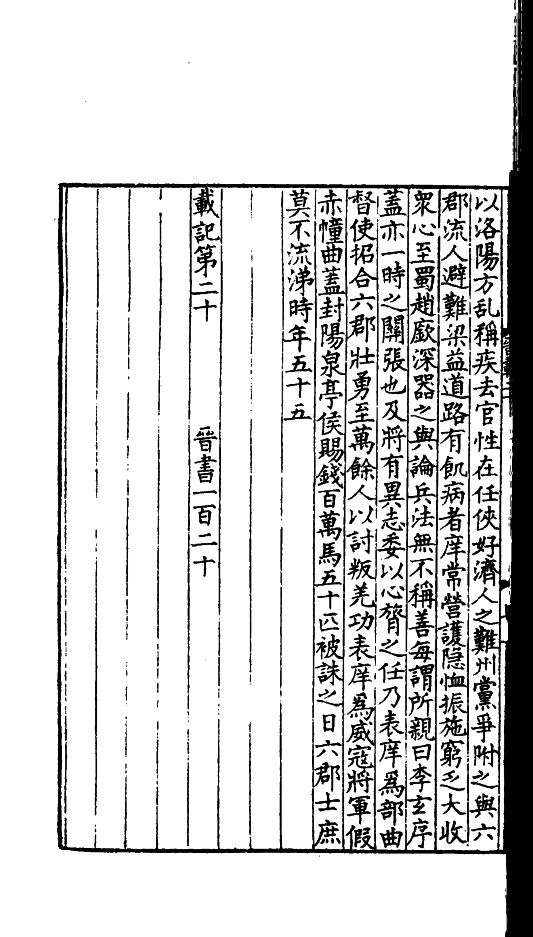 以洛陽方乱稱疾去官性在任俠好濟人之難州黨爭附之與六
郡流人避難梁益道路有飢病者庠常營護隠恤振施窮乏大收
衆心至蜀趙廞深器之與論兵法無不稱善每謂所親曰李玄序
蓋亦一時之關張也及將有異志委以心膂之任乃表庠爲部曲
督使招合六郡壯勇至萬餘人以討叛羌功表庠爲威寇將軍假
赤幢曲蓋封陽泉亭侯賜錢百萬馬五十匹被誅之日六郡士庶
莫不流涕時年五十五
載記第二十 晉書一百二十